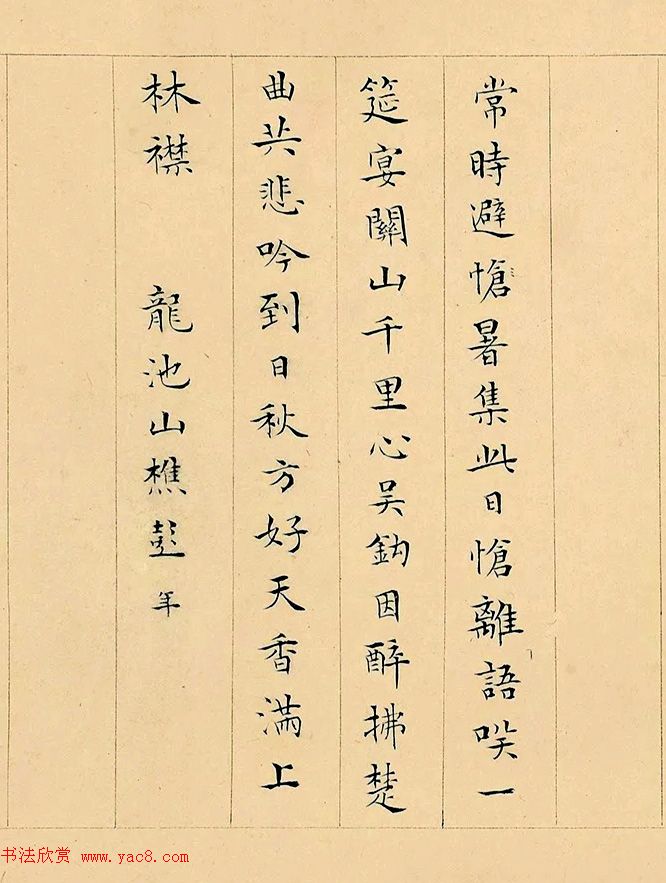 常時避愴暑集此日愴離語咲一
筵宴關山千里心吴鈎因醉拂楚
曲共悲吟到日秋方好天香滿上
林襟 龍池山樵彭年
书法欣赏 www.yac8.com